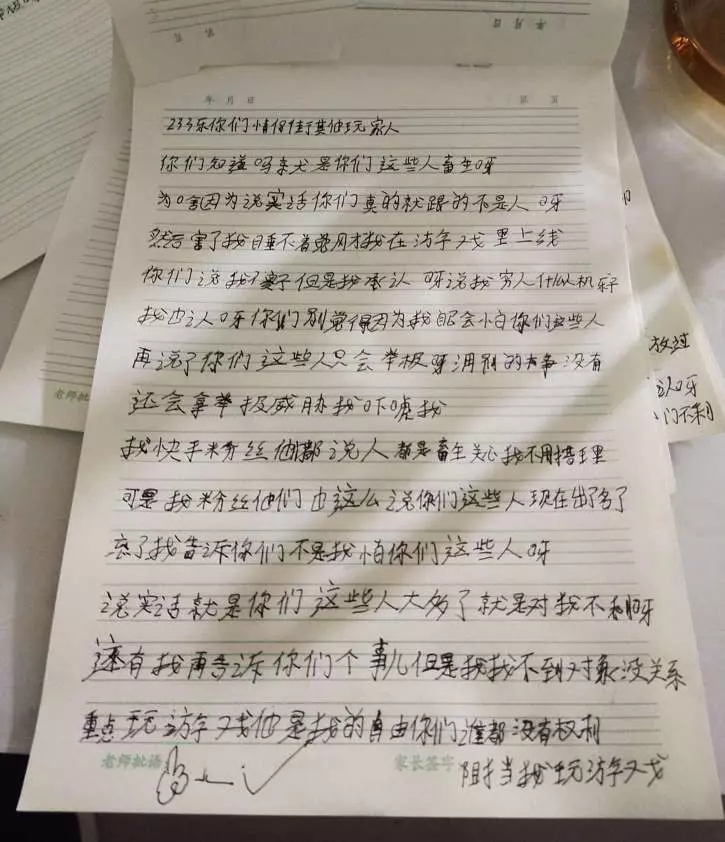 年 月 日
第 页
年 月 日
第 页
233乐你们情侣街其他玩家人
你们知道吗亲犬是你们这些人畜生呀
为啥因为说实话你们真的就跟的不是人呀
然后害了我自垂不着觉刚才我在访字戏里上线
你们说我 但是我承认呀说我穷人什么机
我也认呀你们别觉得因为我能会怕你们这些人
再说了你们这些人只会举极呀润别的本事没有
还会拿举报威胁我吓唬我
我快手粉丝他们都说人都是畜生关心我不用搭理
可是我粉丝他们也这么说你们这些人现在出了名了
忘了我告诉你们不是我怕你们这些人呀
说实话就是你们这些人大多了就是对我不利呀
还有我再告诉你们个事儿但是我找不到对象没关系
重点玩访字戏他是我的自由你们谁都没有权利
阻挡我玩访字戏
老师批语
家长签字
放过
认呀
们不来
老师批